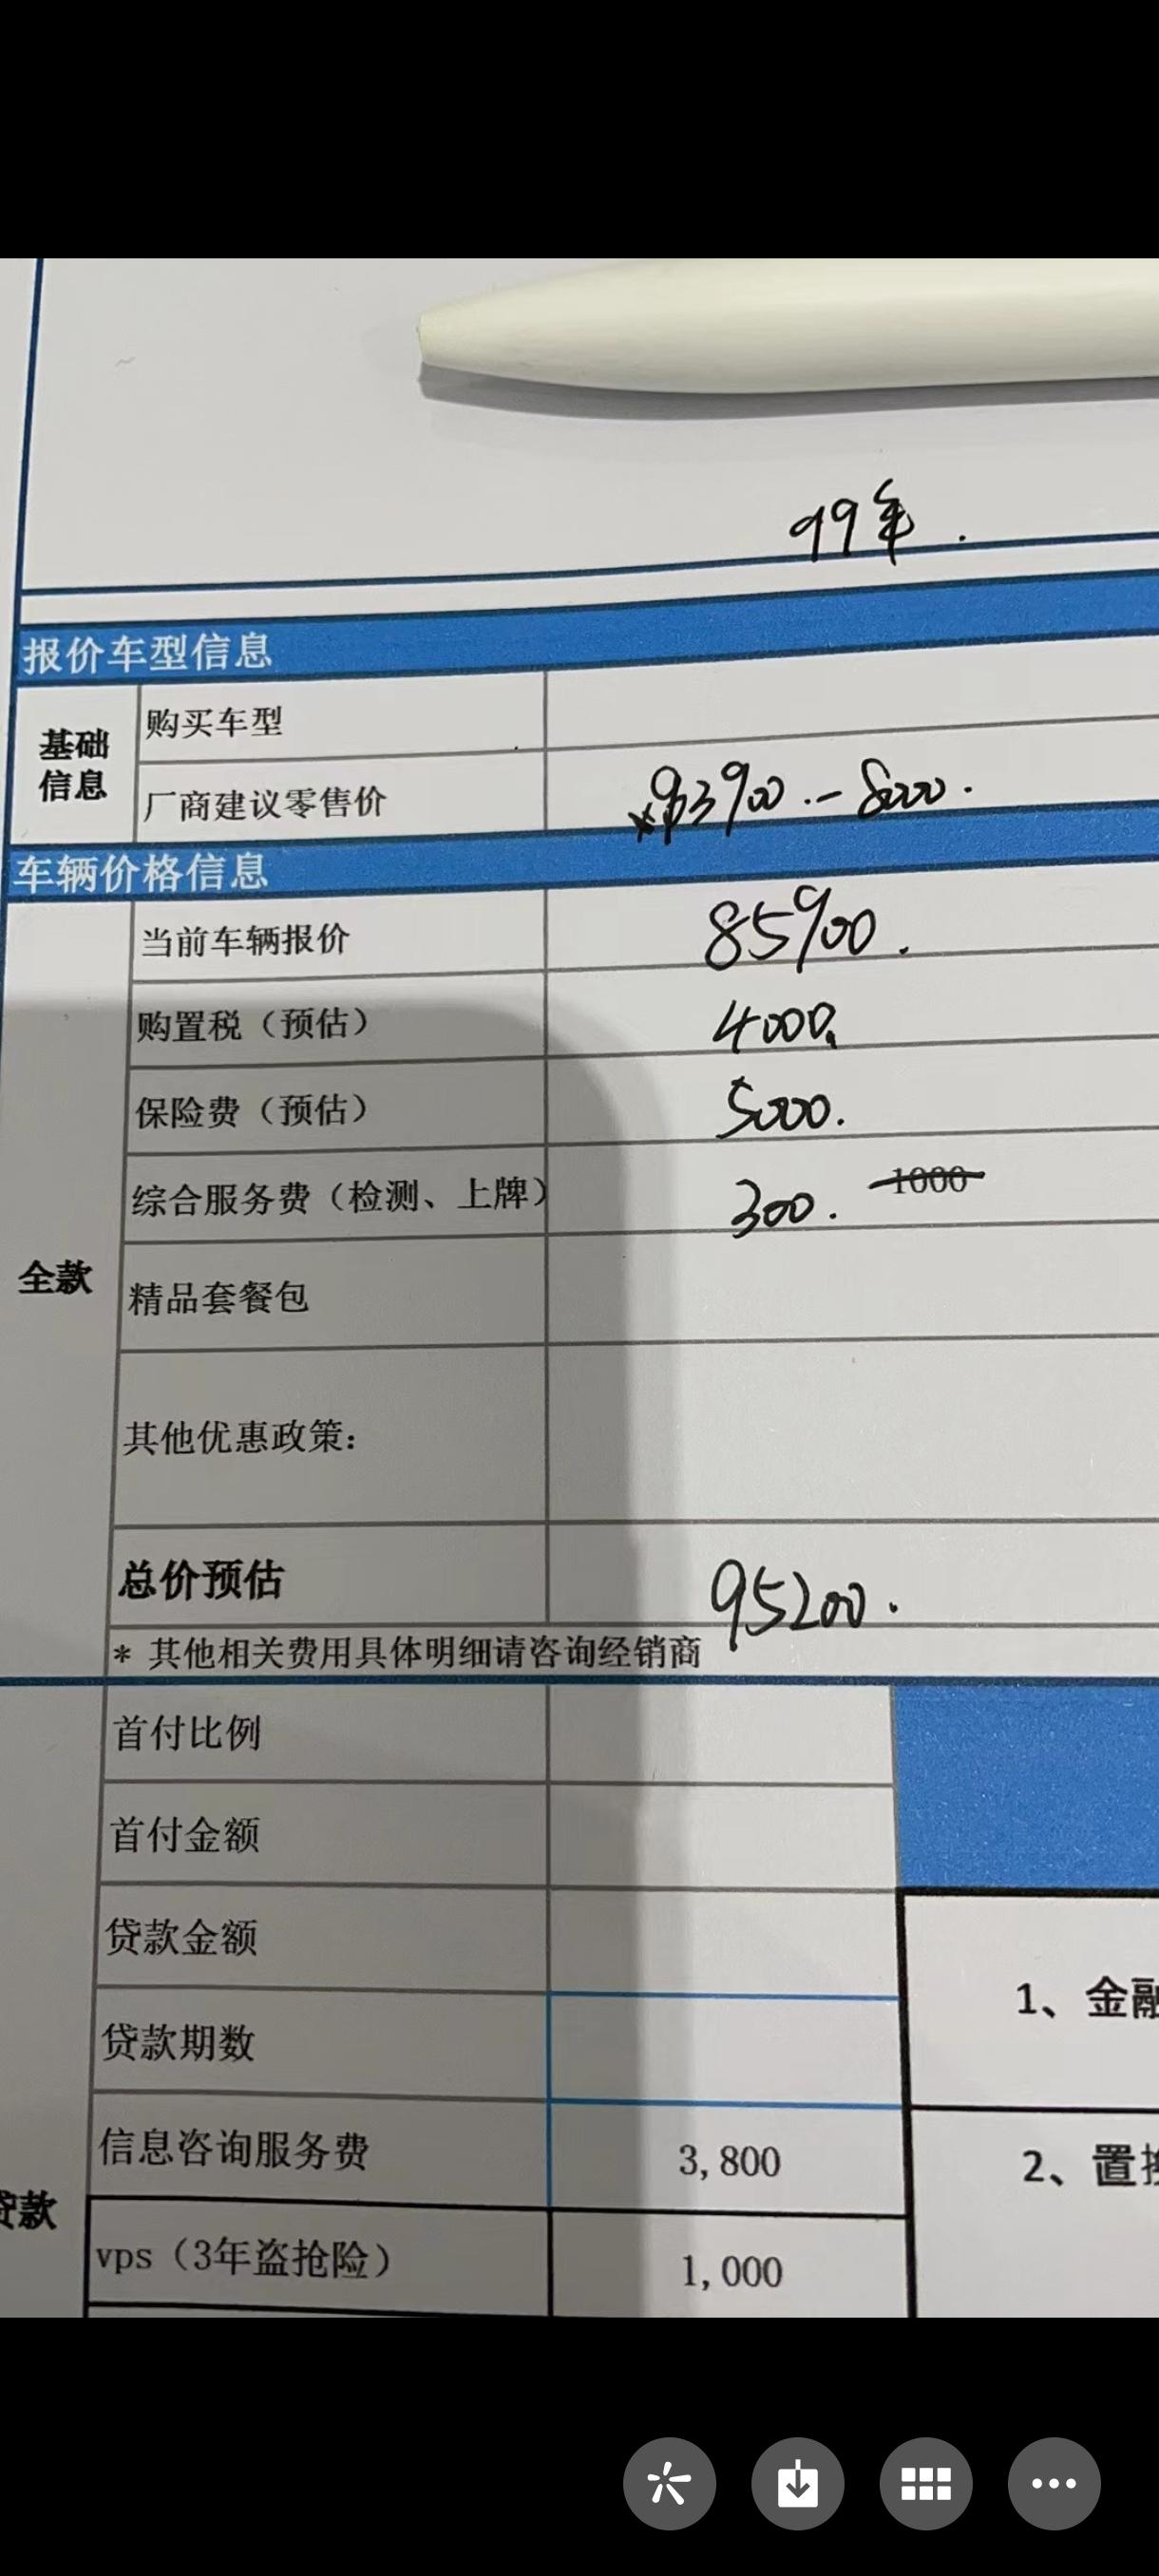 99年.
报价车型信息
基础信息
购买车型
厂商建议零售价 93900.-8000.
车辆价格信息
全款
当前车辆报价 85900.
购置税（预估） 4000.
保险费（预估） 5000.
综合服务费（检测、上牌） 300. 1000
精品套餐包
其他优惠政策：
总价预估 95200.
* 其他相关费用具体明细请咨询经销商
贷款
首付比例
首付金额
贷款金额
贷款期数
信息咨询服务费 3,800
vps（3年盗抢险） 1,000
1、金融
2、置换